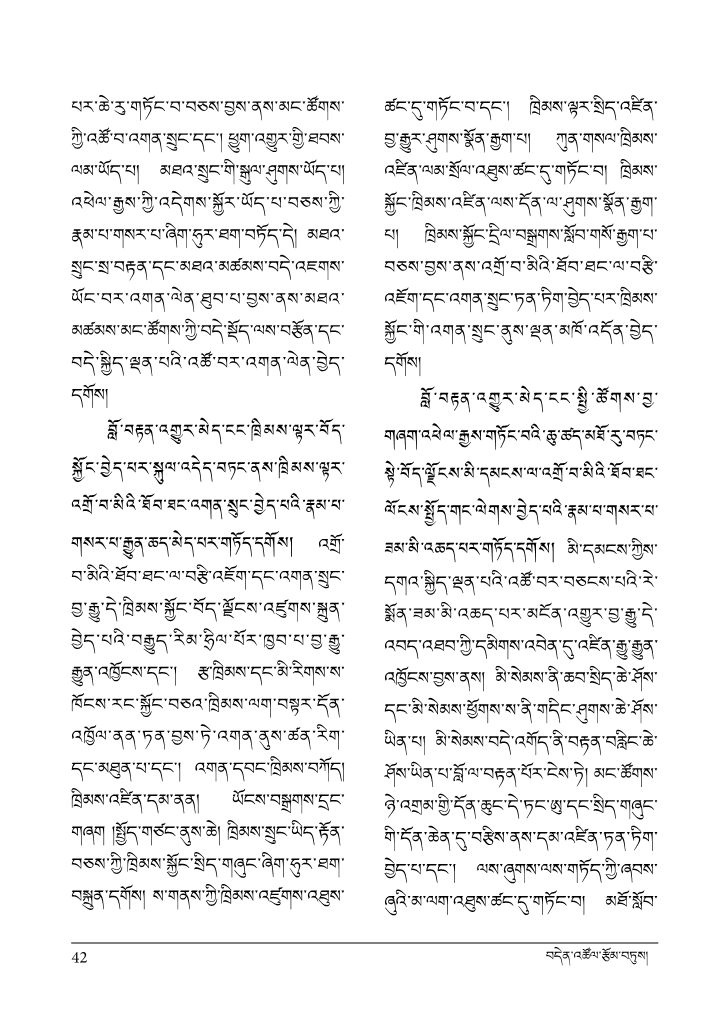 པར་ཆེ་རུ་གཏོང་བ་བཅས་བྱས་ནས་མང་ཚོགས་
ཀྱི་འཚོ་བ་འགན་སྲུང་དང་། ཕྱུག་འགྱུར་གྱི་ཐབས་
ལམ་ཡོད་པ། མཐའ་སྲུང་གི་སྐུལ་ཤུགས་ཡོད་པ།
འཕེལ་རྒྱས་ཀྱི་འདེགས་སྐྱོར་ཡོད་པ་བཅས་ཀྱི་
རྣམ་པ་གསར་པ་ཞིག་ཧུར་ཐག་བཏོད་དེ། མཐའ་
སྲུང་སྲ་བརྟན་དང་མཐའ་མཚམས་བདེ་འཇགས་
ཡོང་བར་འགན་ལེན་ཐུབ་པ་བྱས་ནས་མཐའ་
མཚམས་མང་ཚོགས་ཀྱི་བདེ་སྡོད་ལས་བརྩོན་དང་
བདེ་སྐྱིད་ལྡན་པའི་འཚོ་བར་འགན་ལེན་བྱེད་
དགོས།
བློ་བརྟན་འགྱུར་མེད་ངང་ཁྲིམས་ལྟར་བོད་
སྐྱོང་བྱེད་པར་སྐུལ་འདེད་བཏང་ནས་ཁྲིམས་ལྟར་
འགྲོ་བ་མིའི་ཐོབ་ཐང་འགན་སྲུང་བྱེད་པའི་རྣམ་པ་
གསར་པ་རྒྱུན་ཆད་མེད་པར་གཏོད་དགོས། འགྲོ་
བ་མིའི་ཐོབ་ཐང་ལ་བརྩི་འཇོག་དང་འགན་སྲུང་
བྱ་རྒྱུ་དེ་ཁྲིམས་སྐྱོང་བོད་ལྗོངས་འཛུགས་སྐྲུན་
བྱེད་པའི་བརྒྱུད་རིམ་ཧྲིལ་པོར་ཁྱབ་པ་བྱ་རྒྱུ་
རྒྱུན་འཁྱོངས་དང་། རྩ་ཁྲིམས་དང་མི་རིགས་ས་
ཁོངས་རང་སྐྱོང་བཅའ་ཁྲིམས་ལག་བསྟར་དོན་
འཁྱོལ་ནན་ཏན་བྱས་ཏེ་འགན་ནུས་ཚན་རིག་
དང་མཐུན་པ་དང་། འགན་དབང་ཁྲིམས་བཀོད།
ཁྲིམས་འཛིན་དམ་ནན། ཡོངས་བསྒྲགས་དྲང་
གཞག །སྤྱོད་གཙང་ནུས་ཆེ། ཁྲིམས་སྲུང་ཡིད་རྟོན་
བཅས་ཀྱི་ཁྲིམས་སྐྱོང་སྲིད་གཞུང་ཞིག་ཧུར་ཐག་
བསྐྲུན་དགོས། ས་གནས་ཀྱི་ཁྲིམས་འཛུགས་འཐུས་
ཚང་དུ་གཏོང་བ་དང་། ཁྲིམས་ལྟར་སྲིད་འཛིན་
བྱ་རྒྱུར་ཤུགས་སྣོན་རྒྱག་པ། ཀུན་གསལ་ཁྲིམས་
འཛིན་ལམ་སྲོལ་འཐུས་ཚང་དུ་གཏོང་བ། ཁྲིམས་
སྐྱོང་ཁྲིམས་འཛིན་ལས་དོན་ལ་ཤུགས་སྣོན་རྒྱག་
པ། ཁྲིམས་སྐྱོང་དྲིལ་བསྒྲགས་སློབ་གསོ་རྒྱག་པ་
བཅས་བྱས་ནས་འགྲོ་བ་མིའི་ཐོབ་ཐང་ལ་བརྩི་
འཇོག་དང་འགན་སྲུང་ཏན་ཏིག་བྱེད་པར་ཁྲིམས་
སྐྱོང་གི་འགན་སྲུང་ནུས་ལྡན་མཁོ་འདོན་བྱེད་
དགོས།
བློ་བརྟན་འགྱུར་མེད་ངང་སྤྱི་ཚོགས་བྱ་
གཞག་འཕེལ་རྒྱས་གཏོང་བའི་ཆུ་ཚད་མཐོ་རུ་བཏང་
སྟེ་བོད་ལྗོངས་མི་དམངས་ལ་འགྲོ་བ་མིའི་ཐོབ་ཐང་
ལོངས་སྤྱོད་གང་ལེགས་བྱེད་པའི་རྣམ་པ་གསར་པ་
ཟམ་མི་འཆད་པར་གཏོད་དགོས། མི་དམངས་ཀྱིས་
དགའ་སྐྱིད་ལྡན་པའི་འཚོ་བར་བཅངས་པའི་རེ་
སྨོན་ཟམ་མི་འཆད་པར་མངོན་འགྱུར་བྱ་རྒྱུ་དེ་
འབད་འཐབ་ཀྱི་དམིགས་འབེན་དུ་འཛིན་རྒྱུ་རྒྱུན་
འཁྱོངས་བྱས་ནས། མི་སེམས་ནི་ཆབ་སྲིད་ཆེ་ཤོས་
དང་མི་སེམས་ཕྱོགས་ས་ནི་གདེང་ཤུགས་ཆེ་ཤོས་
ཡིན་པ། མི་སེམས་བདེ་འགོད་ནི་བརྟན་བརླིང་ཆེ་
ཤོས་ཡིན་པ་བློ་ལ་བརྟན་པོར་ངེས་ཏེ། མང་ཚོགས་
ཉེ་འགྲམ་གྱི་དོན་ཆུང་དེ་ཏང་ཨུ་དང་སྲིད་གཞུང་
གི་དོན་ཆེན་དུ་བརྩིས་ནས་དམ་འཛིན་ཏན་ཏིག་
བྱེད་པ་དང་། ལས་ཞུགས་ལས་གཏོད་ཀྱི་ཞབས་
ཞུའི་མ་ལག་འཐུས་ཚང་དུ་གཏོང་བ། མཐོ་སློབ་
42
བདེན་འཚོལ་རྩོམ་བཏུས།